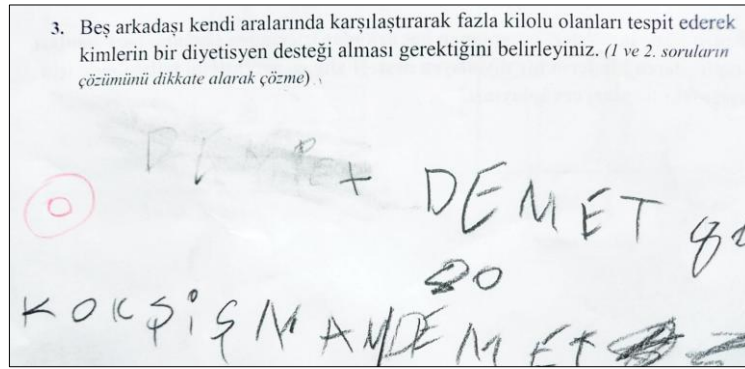 3. Beş arkadaşı kendi aralarında karşılaştırarak fazla kilolu olanları tespit ederek
kimlerin bir diyetisyen desteği alması gerektiğini belirleyiniz. (1 ve 2. soruların
çözümünü dikkate alarak çözme)
DEMET
0
DEMET
20
KOKŞİŞMANDEMET